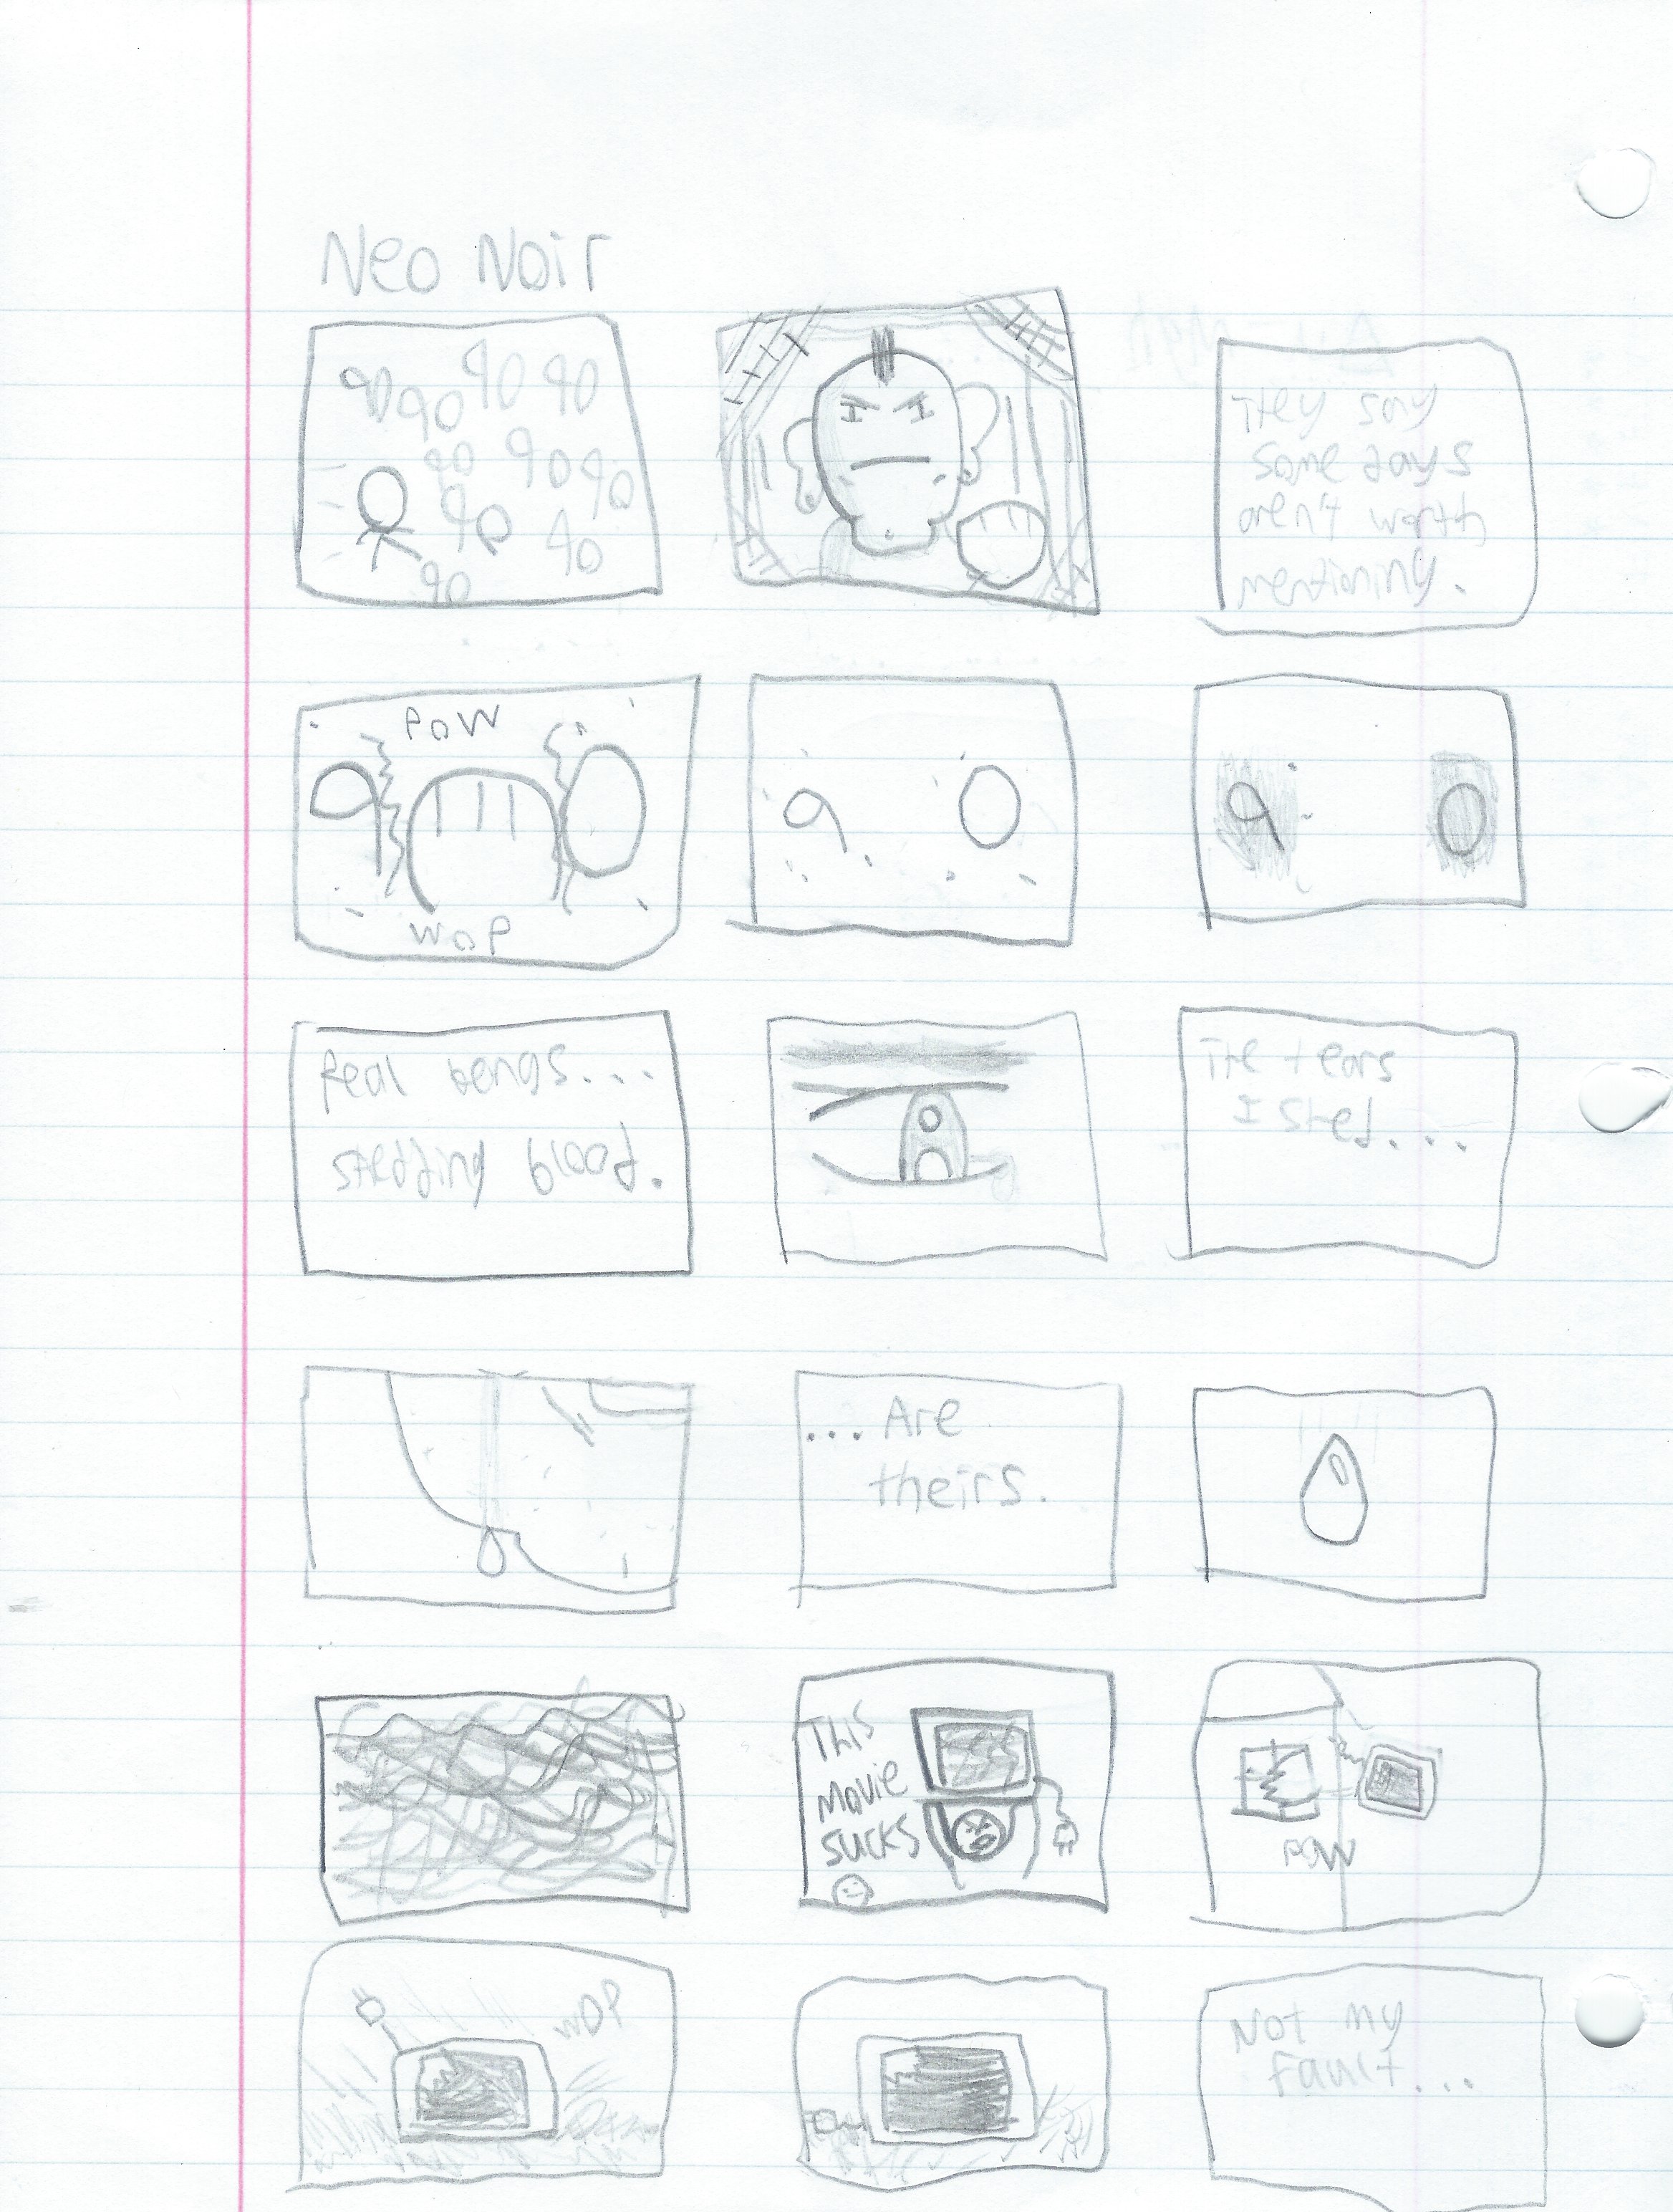 Neo Noir
90 90 90 90
90 90 90
90 90
90
They say
some days
aren't worth
mentioning.
POW
9 0
WOP
9 0
9 0
Real bengs....
shedding blood.
The tears
I shed....
... Are
theirs.
This
Movie
sucks
POW
WOP
Not my
fault...